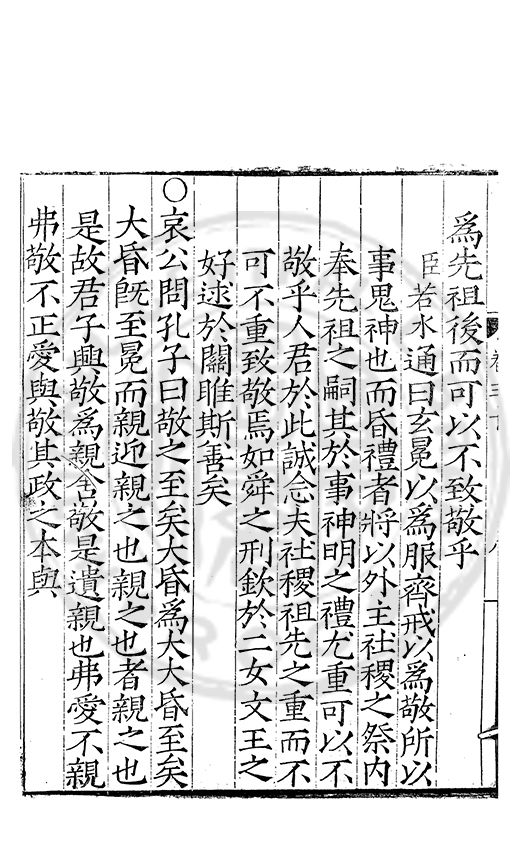 爲先祖後而可以不致敬乎
臣若水通曰玄冕以爲服齊戒以爲敬所以
事鬼神也而昏禮者將以外主社稷之祭内
奉先祖之嗣其於事神明之禮尤重可以不
敬乎人君於此誠念夫社稷祖先之重而不
可不重致敬焉如舜之刑欽於二女文王之
好逑於關雎斯善矣
○哀公問孔子曰敬之至矣大昏爲大大昏至矣
大昏旣至冕而親迎親之也親之也者親之也
是故君子興敬爲親舍敬是遺親也弗愛不親
弗敬不正愛與敬其政之本與